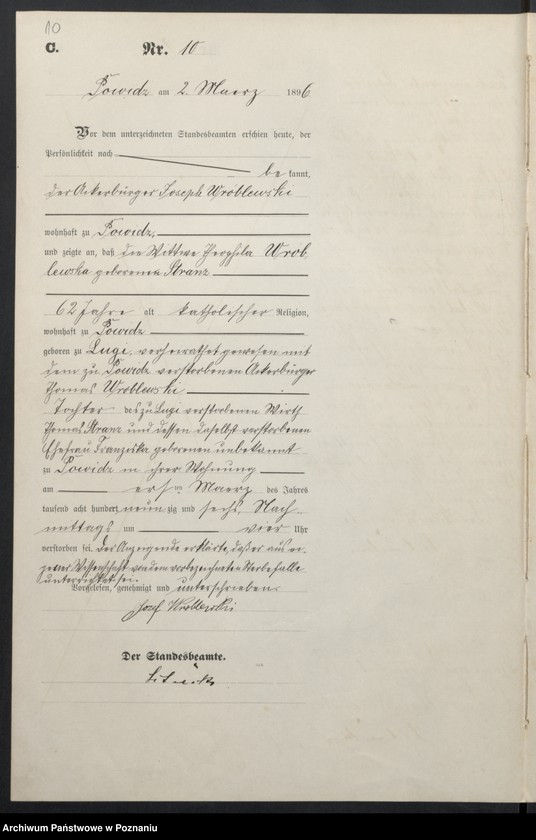 10
C.
Nr. 10
Powidz am 2. Maerz 1896
Vor dem unterzeichneten Standesbeamten erschien heute, der
Persönlichkeit nach
be kannt,
der Ackerbürger Joseph Wróblewski
wohnhaft zu Powidz,
und zeigte an, daß die Wittwe Theophila Wrob-
lewska geborenen Stranz
62 Jahre alt katholischer Religion,
wohnhaft zu Powidz
geboren zu Lugi, verheirathet gewesen mit
dem zu Powidz verstorbenen Ackerbürger
Thomas Wroblewski
Tochter des zu Lugi verstorbenen Wirth
Thomas Stranz und dessen daselbst verstorbenen
Ehefrau Franziska geborenen unbekannt
zu Powidz in ihrer Wohnung
am ersten Maerz des Jahres
tausend acht hundert neun zig und sechs, Nach-
mittags um vier Uhr
verstorben sei. Der Anzeigende erklärte, daß er aus ei-
gener Wissenschaft von dem vorbezeichneten Sterbefalle
unterrichtet sei.
Vorgelesen, genehmigt und unterschrieben.
Jozef Wroblewski
Der Standesbeamte.
Archiwum Państwowe w Poznaniu